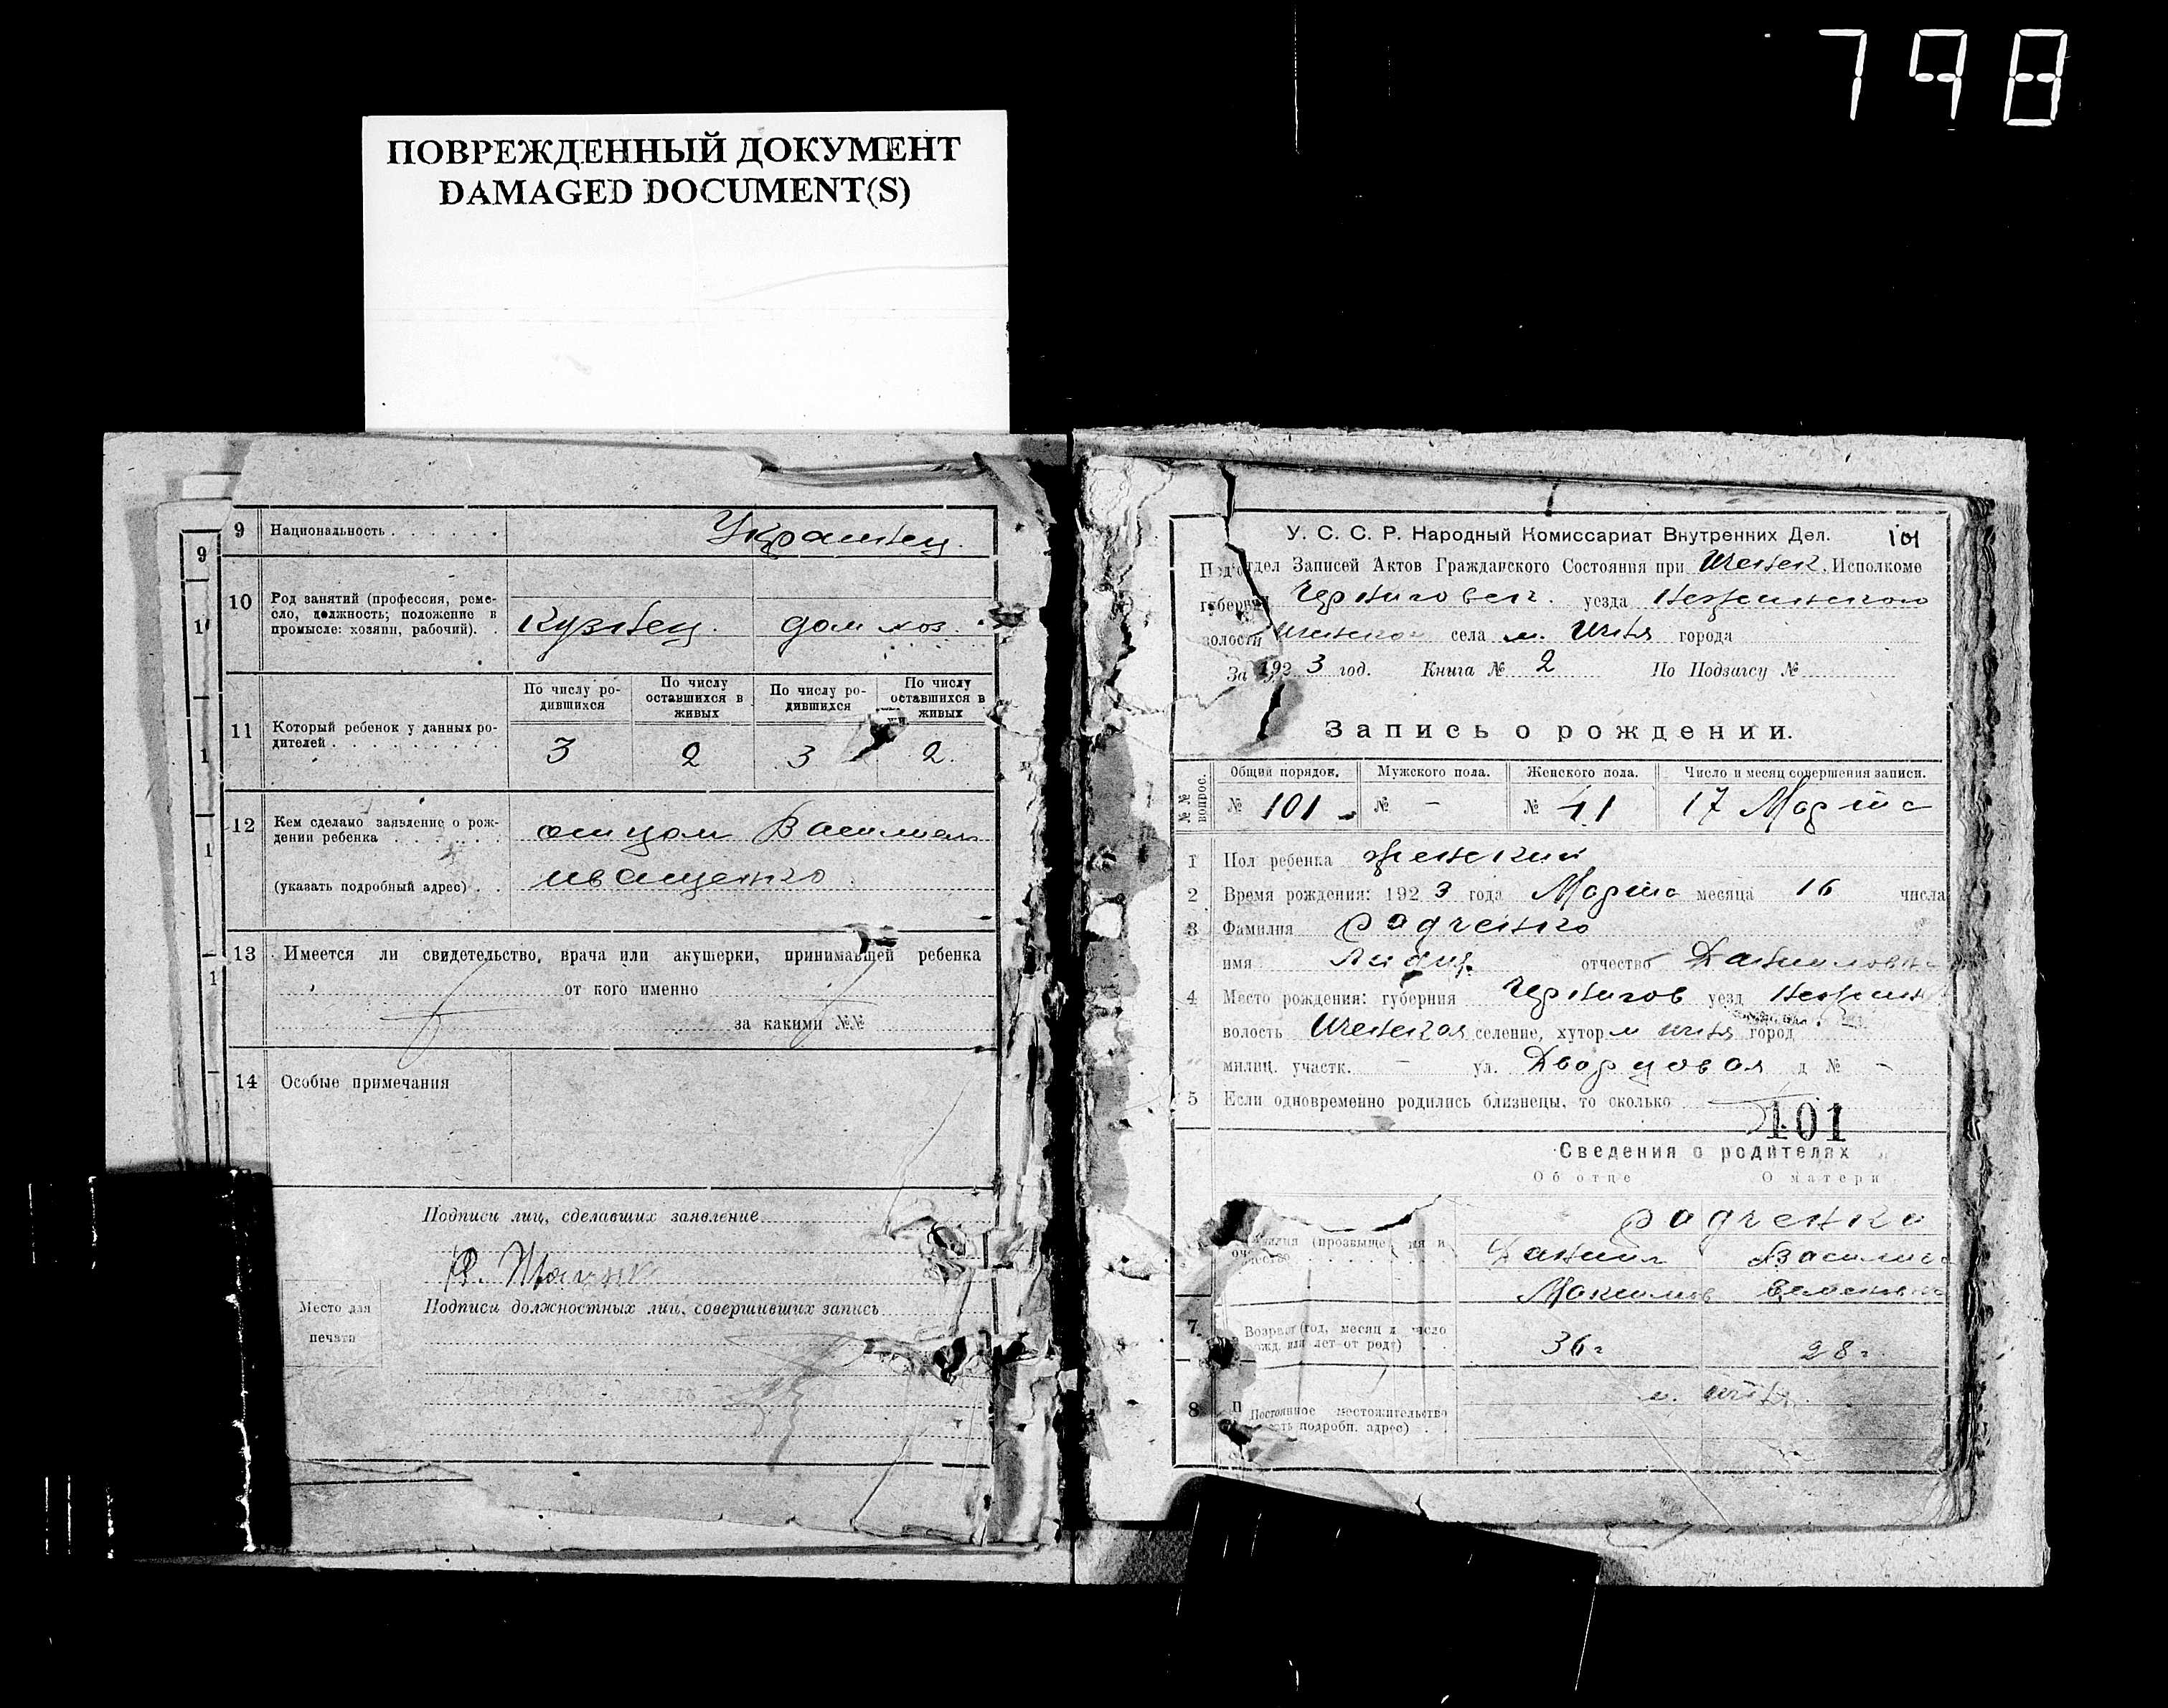 798
ПОВРЕЖДЕННЫЙ ДОКУМЕНТ
DAMAGED DOCUMENT(S)
9 Национальность . . . . . . Украинец.
9
10 Род занятий (профессия, ремесло, должность; положение в промысле: хозяин, рабочий). . кузнец. дом хоз.
По числу родившихся По числу оставшихся в живых По числу родившихся По числу оставшихся в живых
11 Который ребенок у данных родителей . . . . . . . . . 3 2 3 2.
12 Кем сделано заявление о рождении ребенка . . . . . . . отцом Василием
(указать подробный адрес) . . иващенко
13 Имеется ли свидетельство, врача или акушерки, принимавшей ребенка
от кого именно
за какими №№
14 Особые примечания
Подписи лиц, сделавших заявление
Подписи должностных лиц, совершивших запись
Место для
печати
У. С. С. Р. Народный Комиссариат Внутренних Дел. 101
Под'отдел Записей Актов Гражданского Состояния при Иченск. Исполкоме
губернии Черниговск. уезда Нежинского
волости Иченской села м. Ичня города
За 1923 год. Книга № 2 По Подзагсу №
Запись о рождении.
№№ вопрос. Общий порядок. Мужского пола. Женского пола. Число и месяц совершения записи.
№ 101 № - № 41 17 Марта
1 Пол ребенка женский
2 Время рождения: 1923 года Марта месяца 16 числа
3 Фамилия Радченко
имя Лидия отчество Даниловна
4 Место рождения: губерния Чернигов уезд Нежин
волость Иченская селение, хутор м Ичня город
милиц. участк. - ул. Дворцовая д № -
5 Если одновременно родились близнецы, то сколько
101
Сведения о родителях
Об отце О матери
Радченко
Фамилия (прозвище) имя и отчество . . . Даниил Василиса
Максимов Семеновна
7 Возраст (год, месяц и число рожд. или лет от роду) 36 г 28 г.
м. Ичня
8 Постоянное местожительство
подробн. адрес) . .